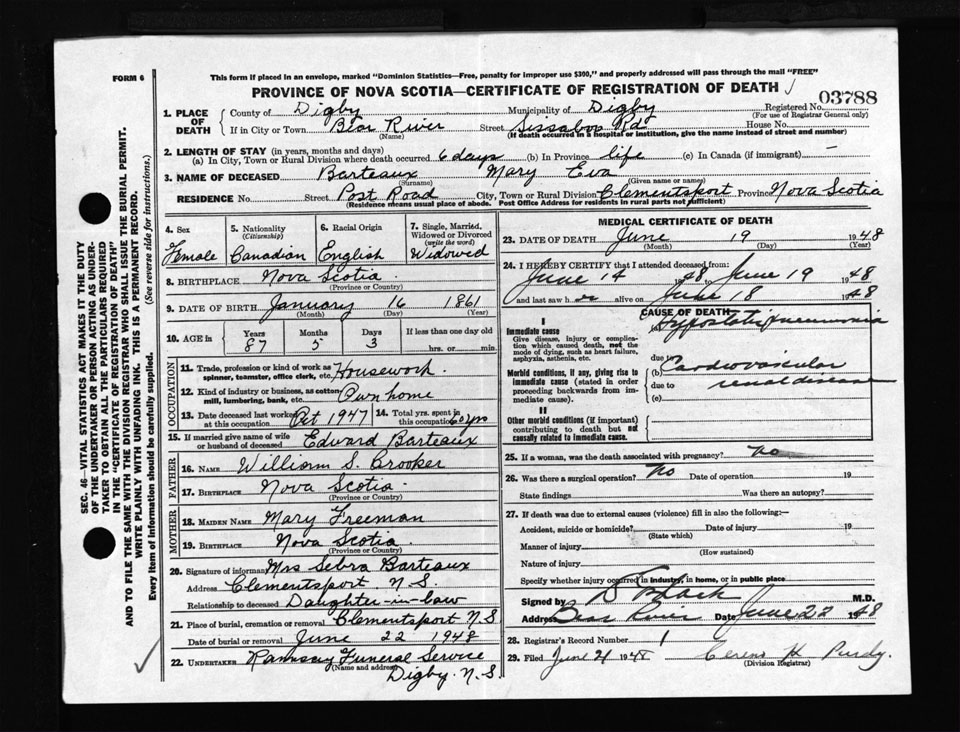 FORM 6
This form if placed in an envelope, marked "Dominion Statistics—Free, penalty for improper use $300," and properly addressed will pass through the mail "FREE"
PROVINCE OF NOVA SCOTIA—CERTIFICATE OF REGISTRATION OF DEATH
03788
1. PLACE OF DEATH County of Digby Municipality of Digby Registered No.
(For use of Registrar General only)
If in City or Town Bear River Street Sissaboo Rd House No.
(Name) (If death occurred in a hospital or institution, give the name instead of street and number)
2. LENGTH OF STAY (in years, months and days)
(a) In City, Town or Rural Division where death occurred 6 days (b) In Province life (c) In Canada (if immigrant) —
3. NAME OF DECEASED Barteaux Mary Eva
(Surname) (Given name or names)
RESIDENCE No. Street Post Road City, Town or Rural Division Clementsport Province Nova Scotia
(Residence means usual place of abode. Post Office Address for residents in rural parts not sufficient)
4. Sex 5. Nationality (Citizenship) 6. Racial Origin 7. Single, Married, Widowed or Divorced (write the word)
Female Canadian English Widowed
8. BIRTHPLACE Nova Scotia
(Province or Country)
9. DATE OF BIRTH January 16 1861
(Month) (Day) (Year)
10. AGE in Years Months Days If less than one day old
87 5 3 hrs. or min.
OCCUPATION
11. Trade, profession or kind of work as spinner, teamster, office clerk, etc. Housework.
12. Kind of industry or business, as cotton mill, lumbering, bank, etc. Own home
13. Date deceased last worked at this occupation Oct 1947 14. Total yrs. spent in this occupation
15. If married give name of wife or husband of deceased Edward Barteaux
FATHER
16. Name William S. Crooker
17. Birthplace Nova Scotia
(Province or Country)
MOTHER
18. Maiden Name Mary Freeman
19. Birthplace Nova Scotia.
(Province or Country)
20. Signature of informant Mrs Sebra Barteaux
Address Clementsport N.S.
Relationship to deceased Daughter-in-law
21. Place of burial, cremation or removal Clementsport N.S
Date of burial or removal June 22 1948
22. UNDERTAKER Ramsay Funeral Service
(Name and address) Digby. N.S.
MEDICAL CERTIFICATE OF DEATH
23. DATE OF DEATH June 19 1948
(Month) (Day) (Year)
24. I HEREBY CERTIFY that I attended deceased from:
June 14 1948 to June 19 1948
and last saw her alive on June 18 1948
CAUSE OF DEATH
I
Immediate cause (a) Hypostatic pneumonia
Give disease, injury or complication which caused death, not the mode of dying, such as heart failure, asphyxia, asthenia, etc.
due to
Morbid conditions, if any, giving rise to immediate cause (stated in order proceeding backwards from immediate cause).
(b) Cardiovascular
due to renal disease
(c)
II
Other morbid conditions (if important) contributing to death but not causally related to immediate cause.
25. If a woman, was the death associated with pregnancy? no
26. Was there a surgical operation? No Date of operation 19
State findings Was there an autopsy?
27. If death was due to external causes (violence) fill in also the following:—
Accident, suicide or homicide? Date of injury 19
(State which)
Manner of injury
(How sustained)
Nature of injury
Specify whether injury occurred in industry, in home, or in public place
Signed by Black M.D.
Address Bear River Date June 22 1948
28. Registrar's Record Number 1
29. Filed June 21 1948 H Purdy.
(Division Registrar)
SEC. 46—VITAL STATISTICS ACT MAKES IT THE DUTY
OF THE UNDERTAKER OR PERSON ACTING AS UNDER-
TAKER TO OBTAIN ALL THE PARTICULARS REQUIRED
IN THE "CERTIFICATE OF REGISTRATION OF DEATH"
AND TO FILE THE SAME WITH THE DIVISION REGISTRAR WHO SHALL ISSUE THE BURIAL PERMIT.
WRITE PLAINLY WITH UNFADING INK. THIS IS A PERMANENT RECORD.
Every item of information should be carefully supplied. (See reverse side for instructions.)